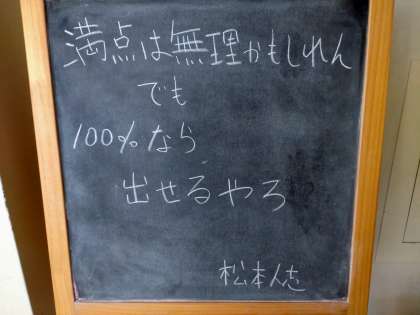 満点は無理かもしれん
でも
100%なら
出せるやろ
松本人志